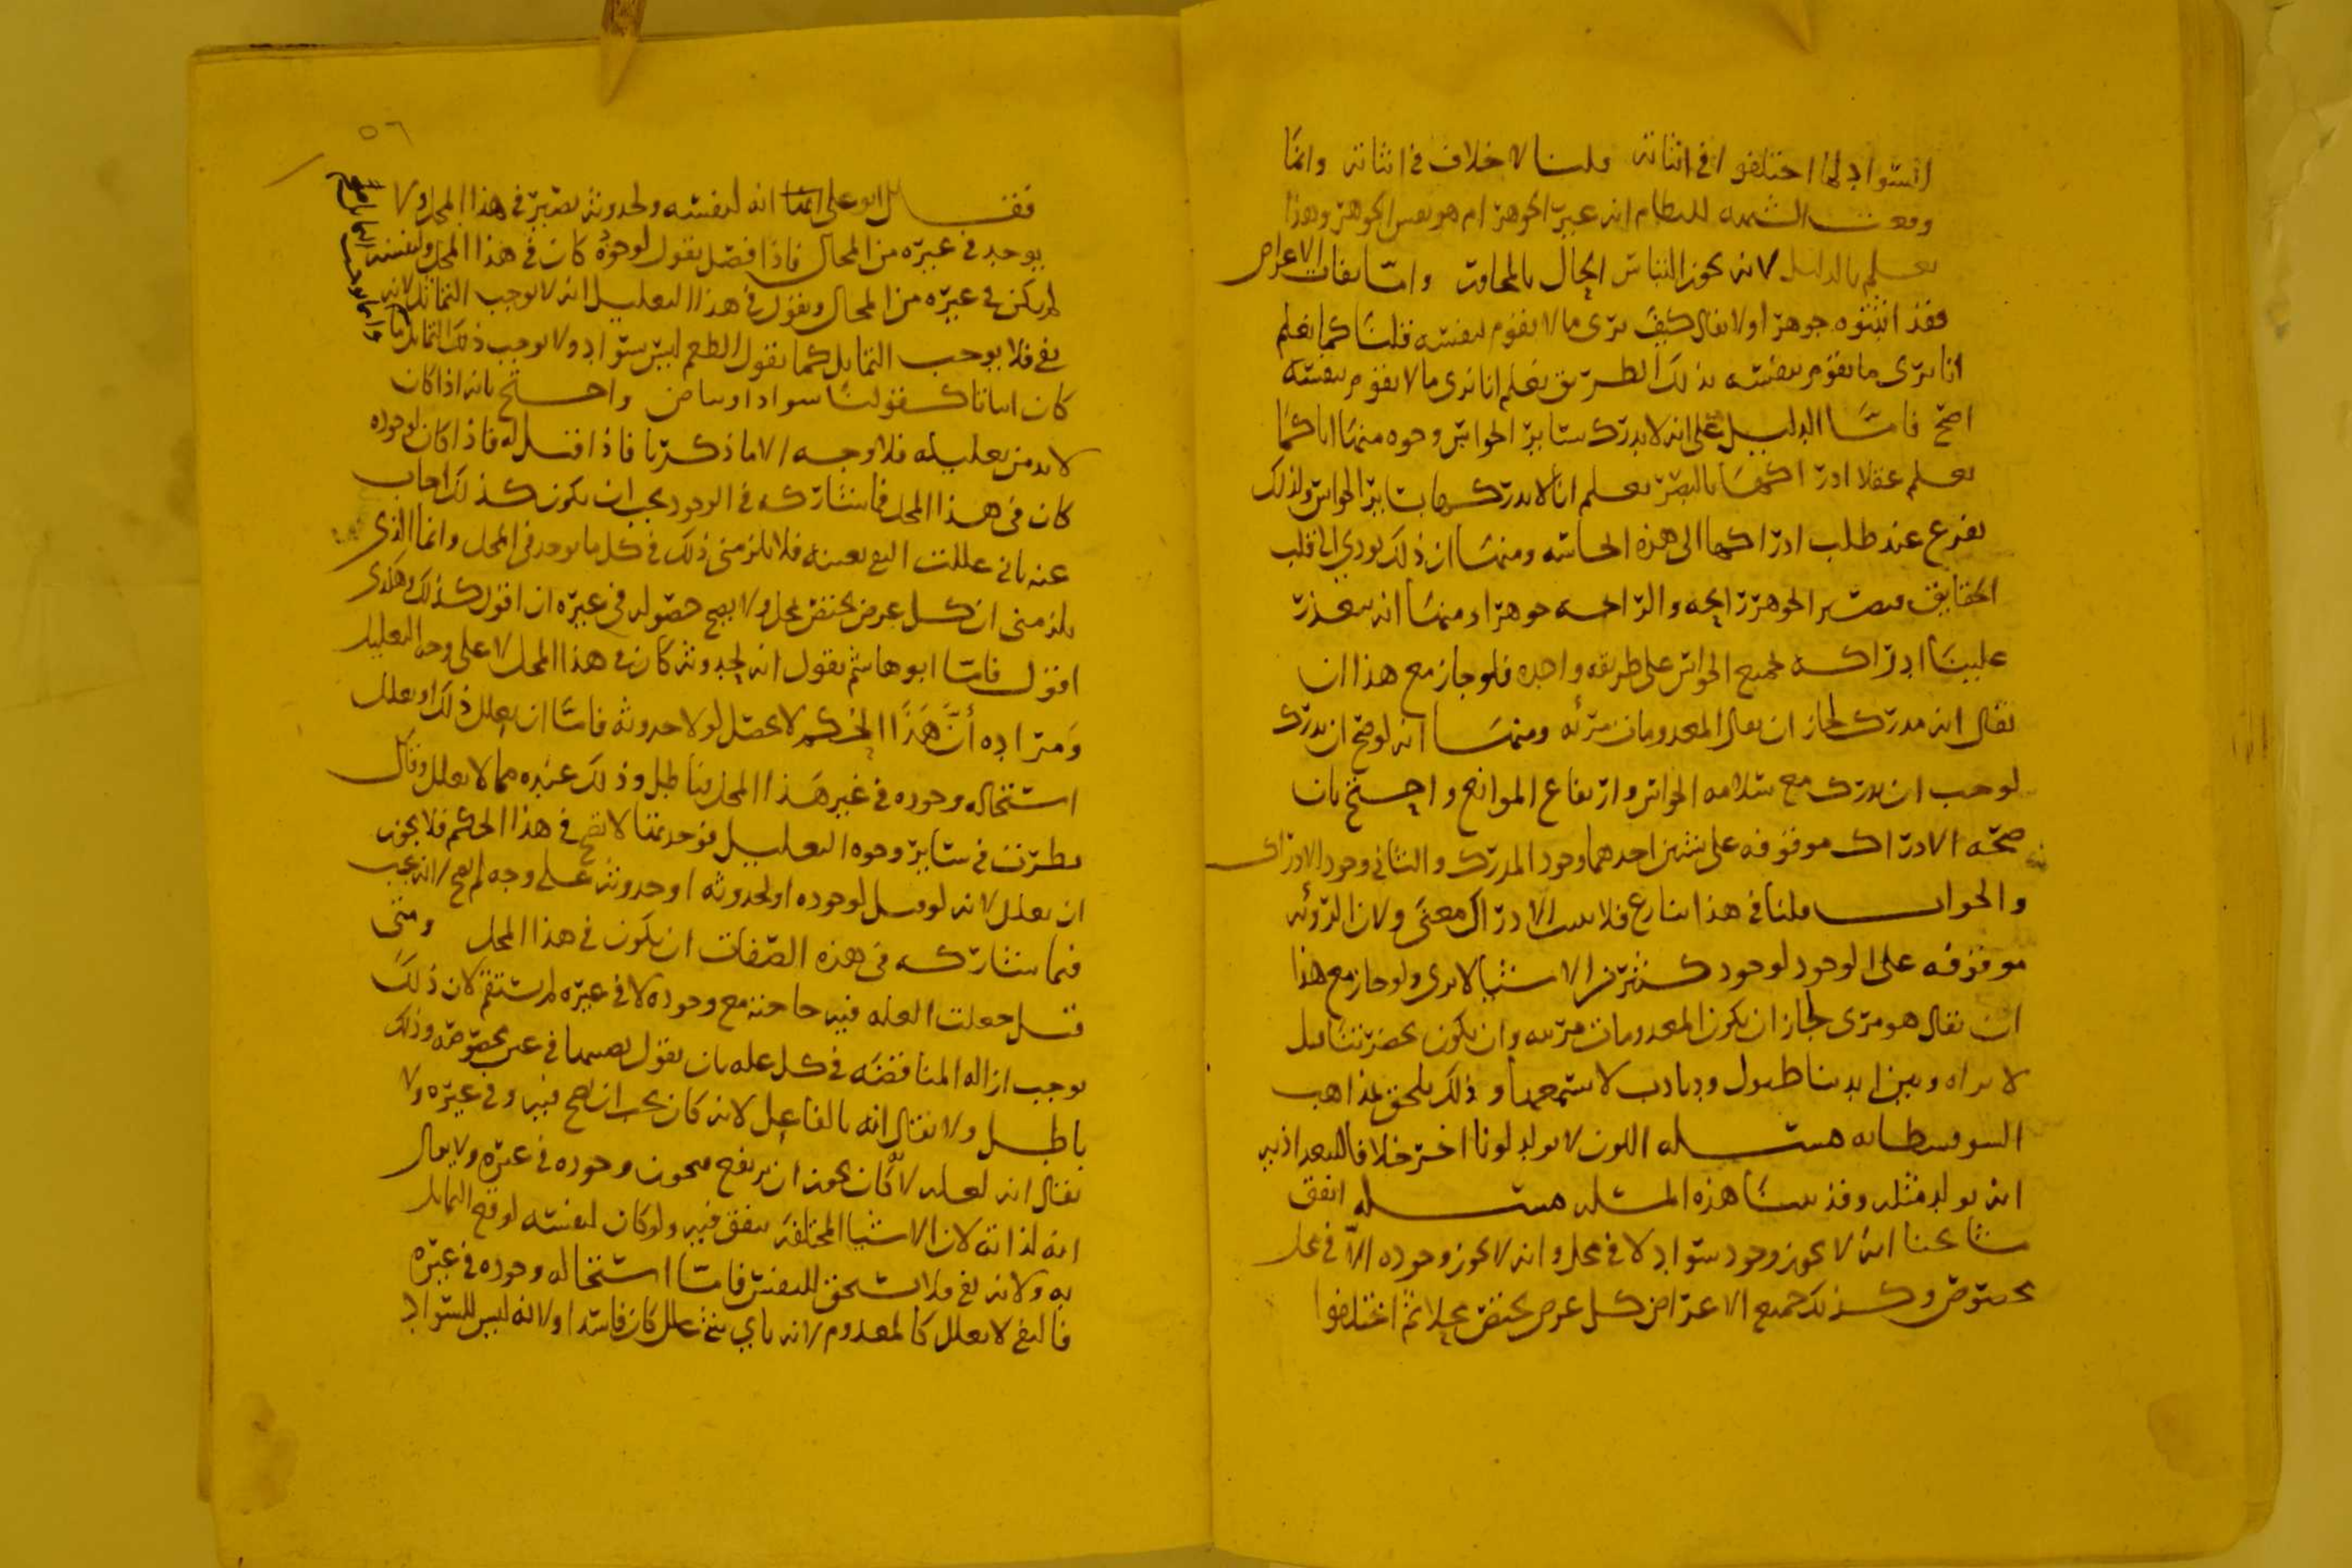 السواد لما اختلفوا في اثباته قلنا لا خلاف في اثباته وانما
وقعت الشبهه للنظام انه غير الجوهر ام هو نفس الجوهر وهذا
يعلم بالدليل لانه يجوز التباس الحال بالمجاور واما نفات الاعراض
فقد اثبتوه جوهرا ولا يقال كيف يرى ما لا يقوم بنفسه قلنا كما يعلم
انا نرى ما يقوم بنفسه بذلك الطريق يعلم انا نرى ما لا يقوم بنفسه
اصح فاما الدليل على انه لا يدرك بسائر الحواس وجوه منها انا كما
نعلم عقلا ادراكها بالبصر نعلم انا لا ندركها بسائر الحواس ولذلك
نفزع عند طلب ادراكها الى هذه الحاسه ومنها ان ذلك يودي الى قلب
الحقايق فيصير الجوهر رايحه والرايحه جوهرا ومنها انه يتعذر
علينا ادراكه بجميع الحواس على طريقه واحده فلو جاز مع هذا ان
يقال انه مدرك لجاز ان يقال المعدومات مرئه ومنها انه لو صح ان يدرك
لوجب ان يدرك مع سلامه الحواس وارتفاع الموانع واحتج بان
صحه الادراك موقوفه على شيئين احدهما وجود المدرك والثاني وجود الادراك
والجواب قلنا في هذا ننازع فلا نثبت الادراك معنى ولان الرؤيه
موقوفه على الوجود لوجود كثير من الاشيا لا يرى ولو جاز مع هذا
ان يقال هو مرى لجاز ان يكون المعدومات مرئيه وان يكون بحضرتنا فيل
لا نراه وبين ايدينا طبول ودبادب لا نسمعها وذلك يلحق بمذاهب
السوفسطائيه مسئله اللون لا يولد لونا اخر خلافا للبغداذيين
انه يولد مثله وقد بينا هذه المسئله مسئله اتفق
مشايخنا انه لا يجوز وجود سواد لا في محل وانه لا يجوز وجوده الا في محل
مخصوص وكذلك جميع الاعراض كل عرض يختص محلا ثم اختلفوا
٥٦
فقال ابو على انما انه لنفسه ولحدوثه يصير في هذا المحل ولا
يوجد في غيره من المحال فاذا فصل يقول لوجوده كان في هذا المحل ولنفسه
لم يكن في غيره من المحال ويقول في هذا التعليل انه لا يوجب التماثل لانه
نفى فلا يوجب التماثل كما نقول الطعم ليس بسواد ولا يوجب ذلك التماثل
كان اثباتا كقولنا سواد او بياض واحتج بانه اذا كان
لا بد من تعليله فلا وجه الا ما ذكرنا فاذا قيل له فاذا كان لوجوده
كان في هذا المحل فما يشاركه في الوجود يجب ان يكون كذلك اجاب
عنه باني عللت النفى بعينه فلا يلزمني ذلك في كل ما يوجد في المحل وانما الذي
يلزمني ان كل عرض يختص بمحل ولا يصح حصوله في غيره ان اقول كذلك وهكذى
اقول فاما ابو هاشم يقول انه لحدوثه كان في هذا المحل لا على وجه التعليل
ومراده ان هذا الحكم لا يحصل لولا حدوثه فاما ان يعلل ذلك او يعلل
استحاله وجوده في غير هذا المحل فباطل وذلك عنده مما لا يعلل وقال
نظرت في سائر وجوه التعليل فوجدتها لا تصح في هذا الحكم فلا يجوز
ان يعلل لانه لو قيل لوجوده او لحدوثه او حدوثه على وجه لم يصح لانه يجب
فيما يشاركه في هذه الصفات ان يكون في هذا المحل ومتى
قيل جعلت العله فيه حاجته مع وجوده لا في غيره لم يستقم لان ذلك
يوجب ازاله المناقضه في كل عله بان يقول بعينها في عين مخصوصه وذلك
باطل ولا يقال انه بالفاعل لانه كان يجب ان يصح فيه وفي غيره ولا
يقال انه لعله لانه كان يجوز ان يرتفع فيجوز وجوده في غيره ولا يقال
انه لذاته لان الاشيا المختلفه يتفق فيه ولو كان لنفسه لوقع التماثل
به ولانه نفى فلا يستحق للنفس فاما استحاله وجوده في غيره
فالنفى لا يعلل كالمعدوم لانه باي شي علل كان فاسدا ولانه ليس للسواد